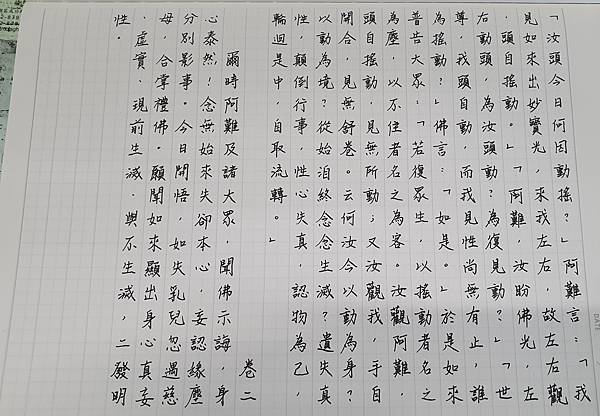 「汝頭今日何因動搖?」阿難言:「我
見如來出妙寶光,來我左右,故左右觀
,頭自搖動。」「阿難,汝盼佛光,左
右動頭,為汝頭動?為復見動?」「世
尊,我頭自動,而我見性尚無有止,誰
為搖動?」佛言:「如是。」於是如來
普告大眾:「若復眾生,以搖動者名之
為塵,以不住者名之為客。汝觀阿難,
頭自搖動,見無所動;又汝觀我,手自
開合,見無舒卷。云何汝今以動為身?
以動為境?從始洎終念念生滅?遺失真
性,顛倒行事,性心失真,認物為己,
輪迴是中,自取流轉。」
卷二
爾時阿難及諸大眾,聞佛示誨,身
心泰然!念無始來失卻本心,妄認緣塵
分別影事。今日開悟,如失乳兒忽遇慈
母,合掌禮佛。願聞如來顯出身心真妄
、虛實,現前生滅、與不生滅,二發明
性。
DATE